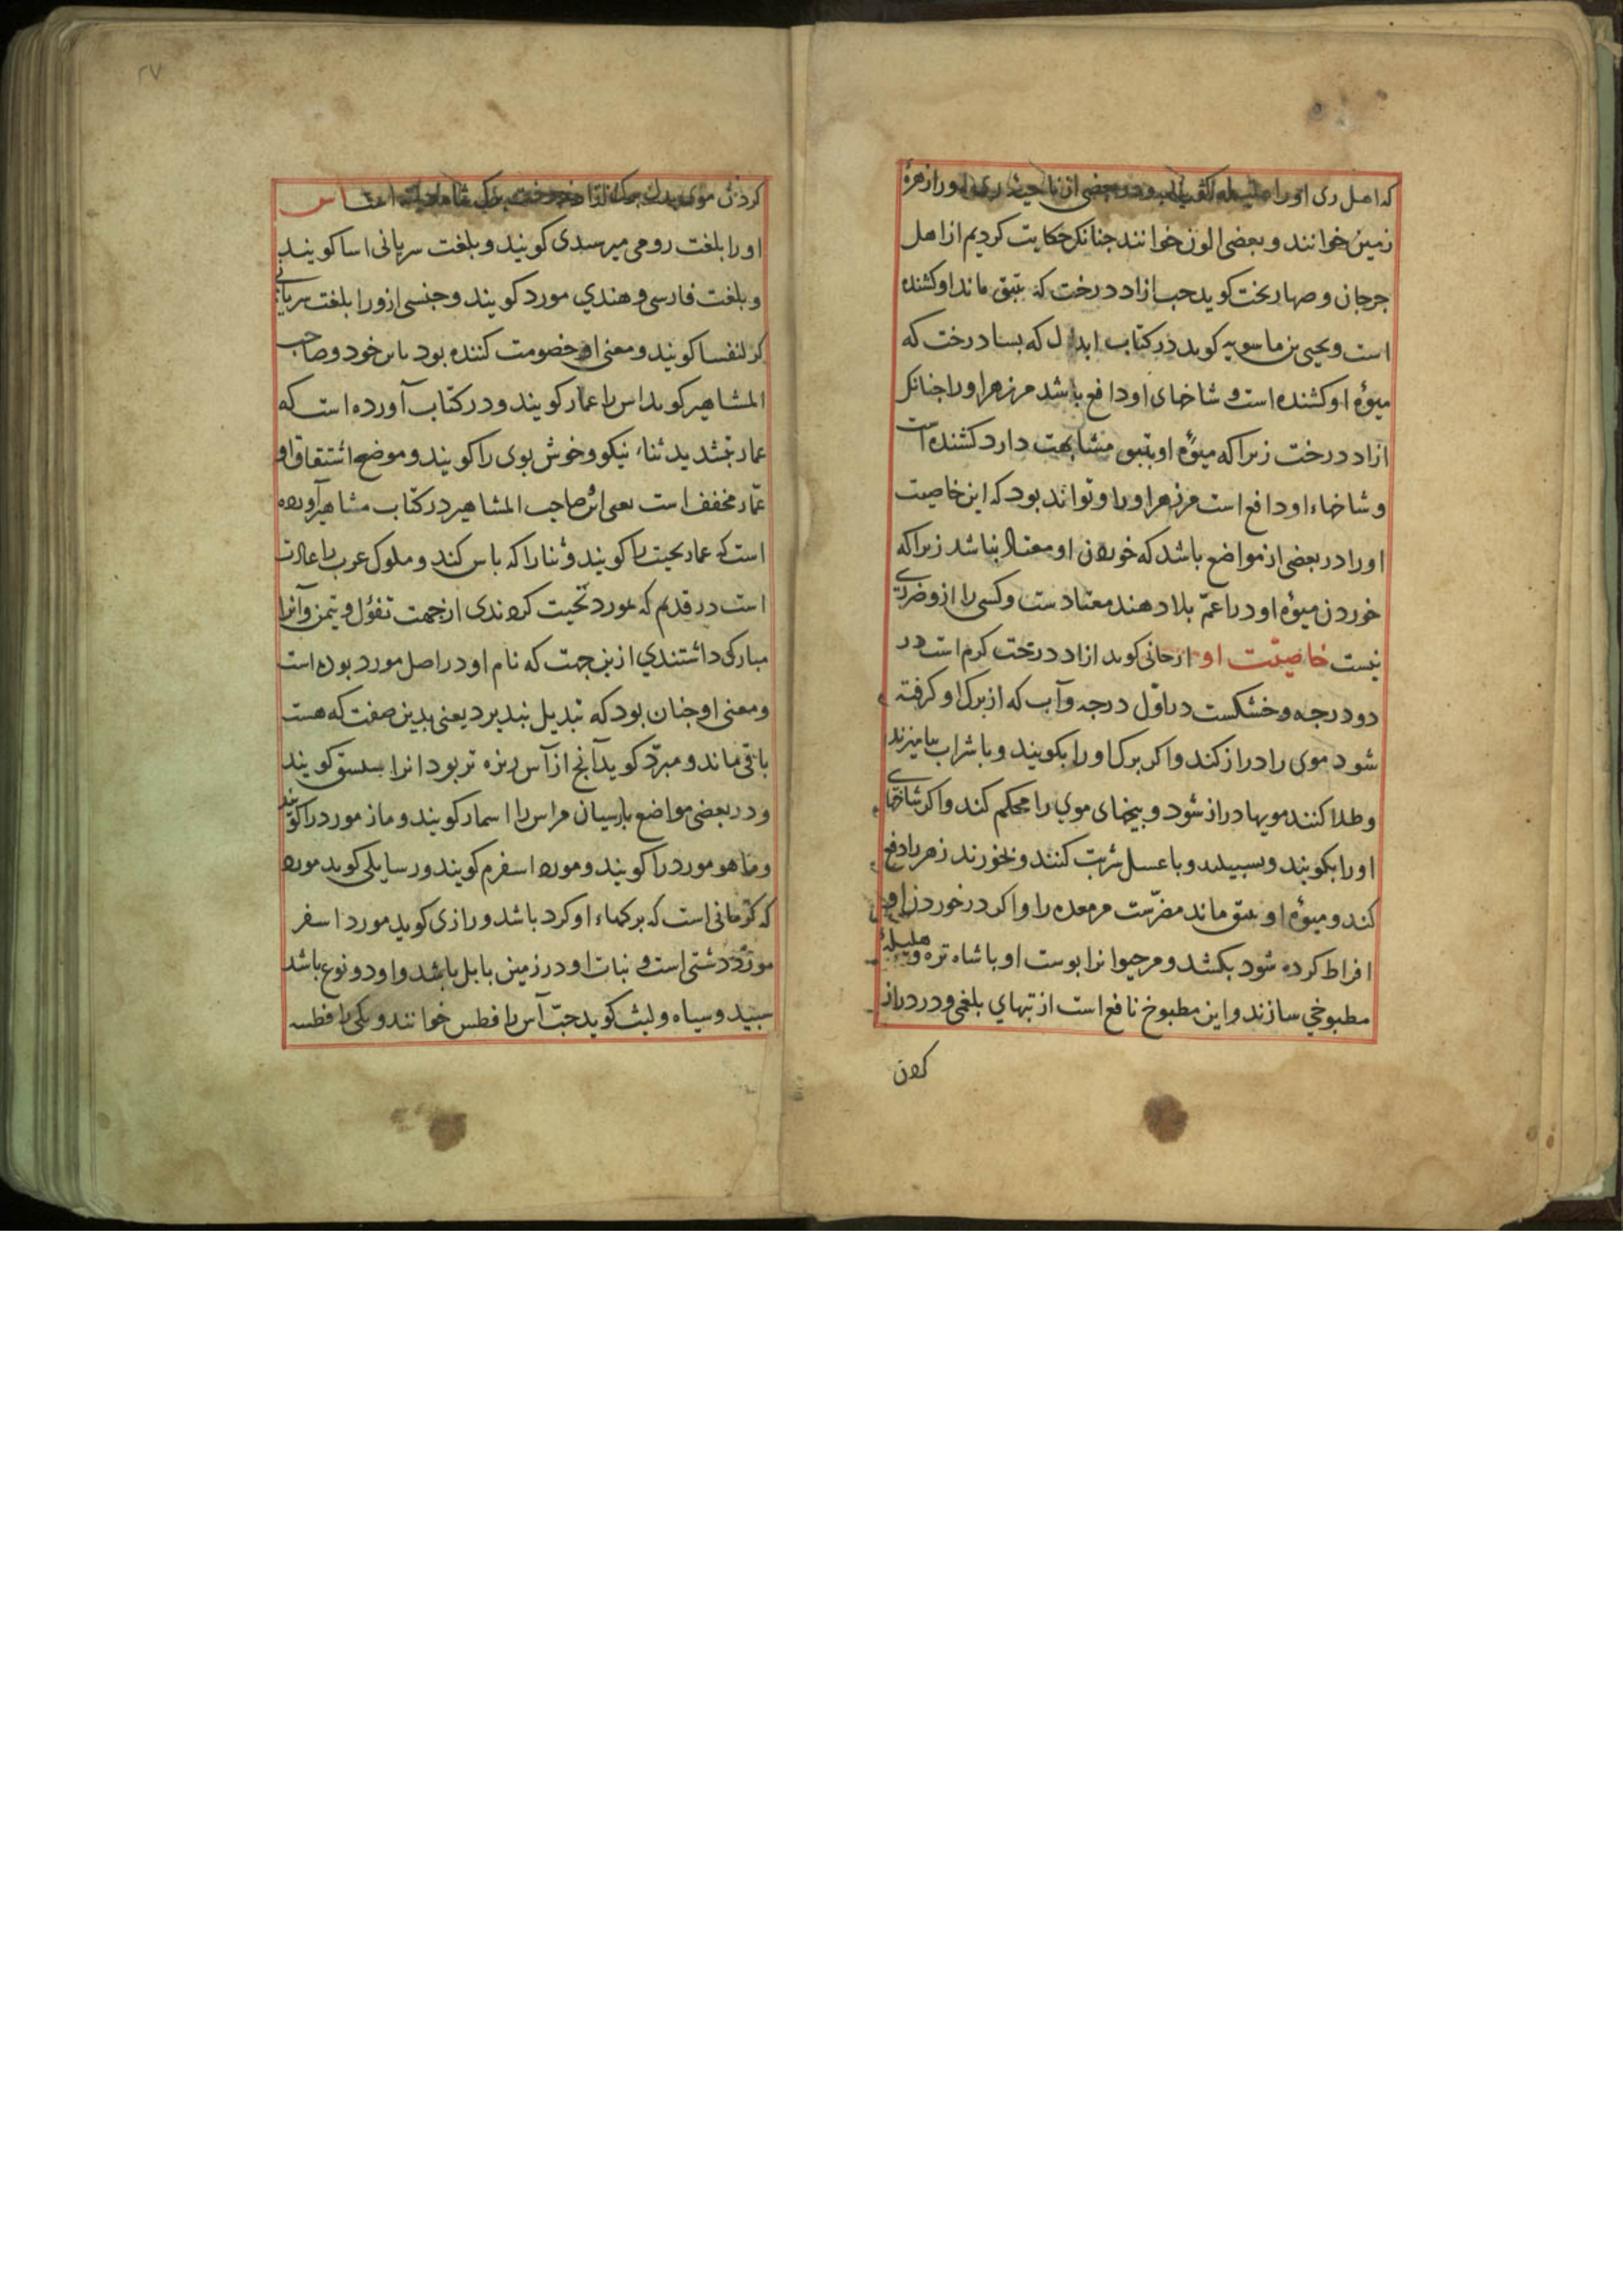 که اهل ری او را
زمین خوانند و بعضی الون خوانند جنانکه حکایت کردیم از اهل
جرجان و صهاربخت کوید حب ازاد درخت که بنبق ماند او کشنده
است و یحیی بن ماسویه کوید در کتاب ابدال که بسا درخت که
میوۀ او کشنده است و شاخهای او دافع باشد مر زهر او را جنانکه
ازاد درخت زیرا که میوۀ او بنبق مشابهت دارد کشنده است
و شاخهاء او دافع است مر زهر او را و تواند بود که این خاصیت
او را در بعضی از مواضع باشد که خوردن او معتاد نباشد زیرا که
خوردن میوۀ او در اعمّ بلاد هند معتادست و کسی را ازو ضرری
نیست خاصیّت او ارجانی کوید ازاد درخت کرم است در
دو درجه و خشکست در اوّل درجه و آب که از برک او کرفته
شود موی را دراز کند و اکر برک او را بکویند و با شراب بیامیزند
و طلا کنند مویها دراز شود و بیخهای موی را محکم کند و اکر شاخهای
او را بکویند و بسپیلند و با عسل شربت کنند و بخورند زهر را دفع
کند و میوۀ او بنبق ماند مضرّست مر معده را و اکر در خوردن او
افراط کرده شود بکشد و مر حیوانرا بوست او با شاه تره و هلیله
مطبوخی سازند و این مطبوخ نافع است از تبهای بلغمی و در دراز
کردن
کردن موی اس
او را بلغت رومی میرسدی کویند و بلغت سریانی اسا کویند
و بلغت فارسی و هندی مورد کویند و جنسی ازو را بلغت سریانی
کرلنفسا کویند و معنی او خصومت کننده بود با تن خود و صاحب
المشاهیر کوید اس را عمار کویند و در کتاب آورده است که
عمار بتشدید ثناء نیکو و خوش بوی را کویند و موضع اشتقاق او
عمّار مخفف است یعنی اس صاحب المشاهیر در کتاب مشاهیر آورده
است که عمار تحیت را کویند و ثنا را که باس کند و ملوک عرب را عادت
است در قدیم که بمورد تحیت کردندی از جهت تفؤل و تیمن و آنرا
مبارک داشتندی ازین جهت که نام او در اصل مورد بوده است
و معنی او جنان بود که تبدیل نبذیرد یعنی بدین صفت که هست
باقی ماند و مبرّد کوید آنج از آس ریزه تر بود انرا بسستق کویند
و در بعضی مواضع بارسیان مر اس را اسمار کویند و ماز مورد را کویند
و ماهو مورد را کویند و مورد اسفرم کویند و رسایلی کوید مورد
که کرمانی است که برکهاء او کرد باشد و رازی کوید مورد اسفر
مورد دشتی است و نبات او در زمین بابل باشد و او دو نوع باشد
سبید و سیاه و لیث کوید حبّ آس را فطس خوانند و یکی را فطسه